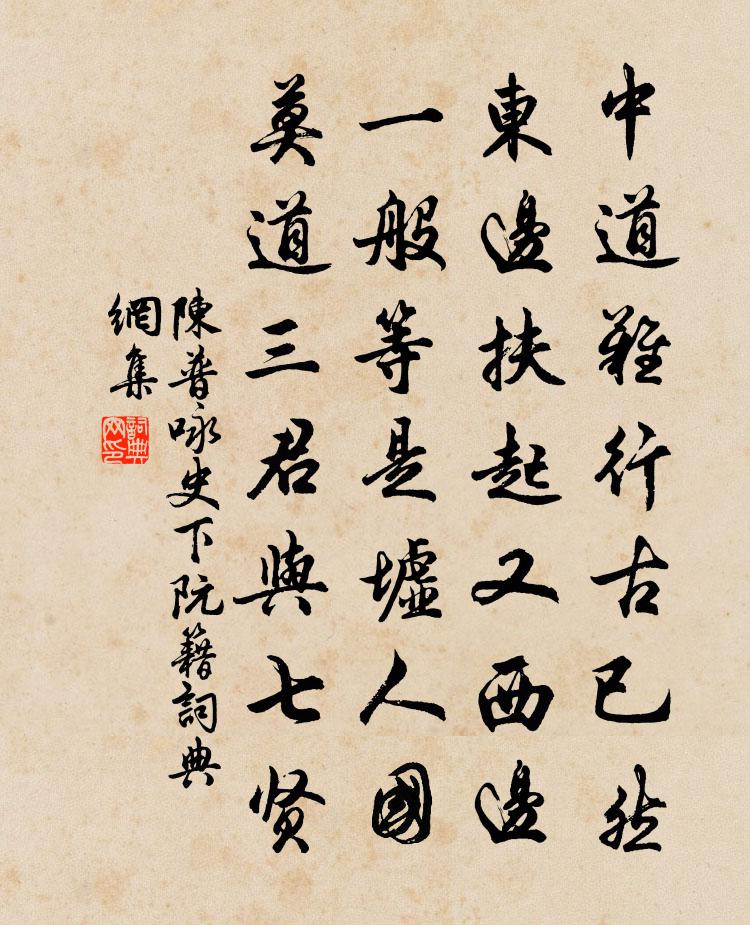 中道難行古已然
東邊扶起又西邊
一般等是墟人國
莫道三君與七贤
陳普咏史下阮籍詞典
網集
詞典网印